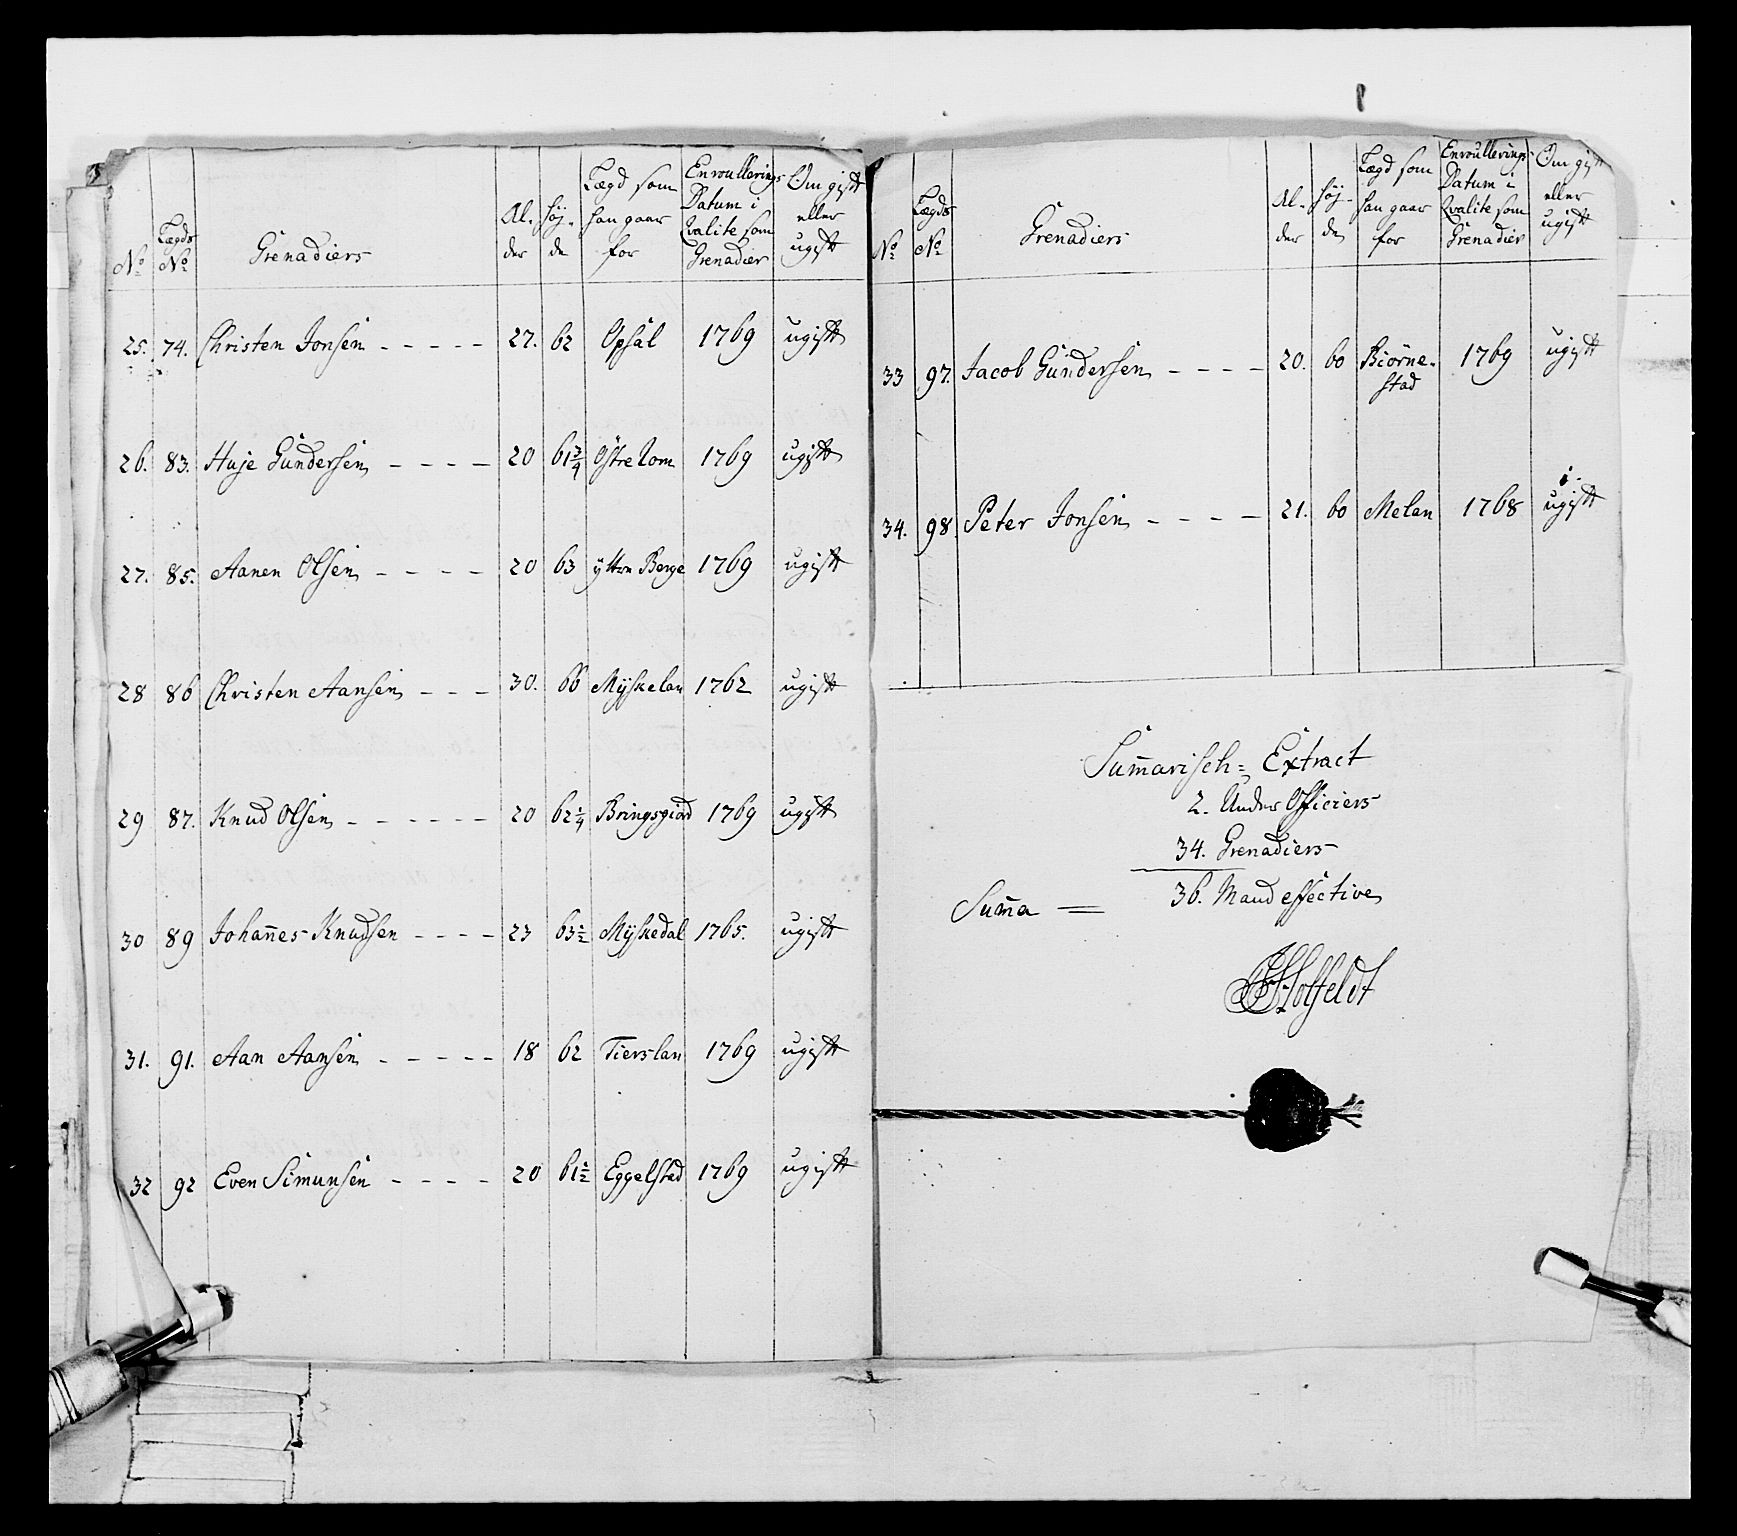 No Lægds No Grenadiers Al- der Høj- de Lægd som han gaar for Enroullerings Datum i Qvalite som Grenadier Om gift eller ugift
25. 74. Christen Jonsen - - - - - 27. 62 Opsal 1769 ugift
26. 83. Huje Gundersen - - - - 20 61 3/4 Østre Lom 1769 ugift
27. 85. Aanen Olsen - - - - 20 63 ÿttre Berge 1769 ugift
28 86 Christen Aansen - - - 30. 66 Mÿskelan 1762 ugift
29 87. Knud Olsen - - - - - - 20 62 1/4 Bringsgiord 1769 ugift
30 89 Johan̄es Knudsen - - - - 23 63 1/2 Mÿskedal 1765. ugift
31. 91. Aan Aansen - - - - - 18 62 Tierslan 1769 ugift
32 92 Even Simunsen - - - - 20 61 1/2 Eggelstad 1769 ugift
No Lægds No Grenadiers Al- der Høj- de Lægd som han gaar for Enroullerings Datum i Qvalite som Grenadier Om gift eller ugift
33 97. Jacob Gundersen - - - - 20. 60 Biörne- stad 1769 ugift
34. 98. Peter Jonsen - - - - 21. 60 Melan 1768 ugift
Sum̄arisch= Extract
2. Under Officiers
34. Grenadiers
Sum̄a = 36. Mand effective
Holfeldt